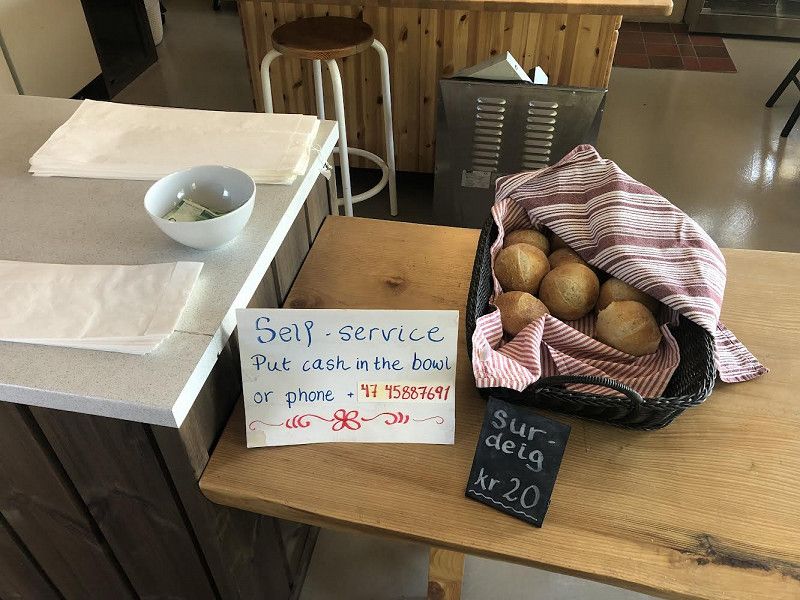 Self-service
Put cash in the bowl
or phone + 47 45887691
sur-
deig
kr 20